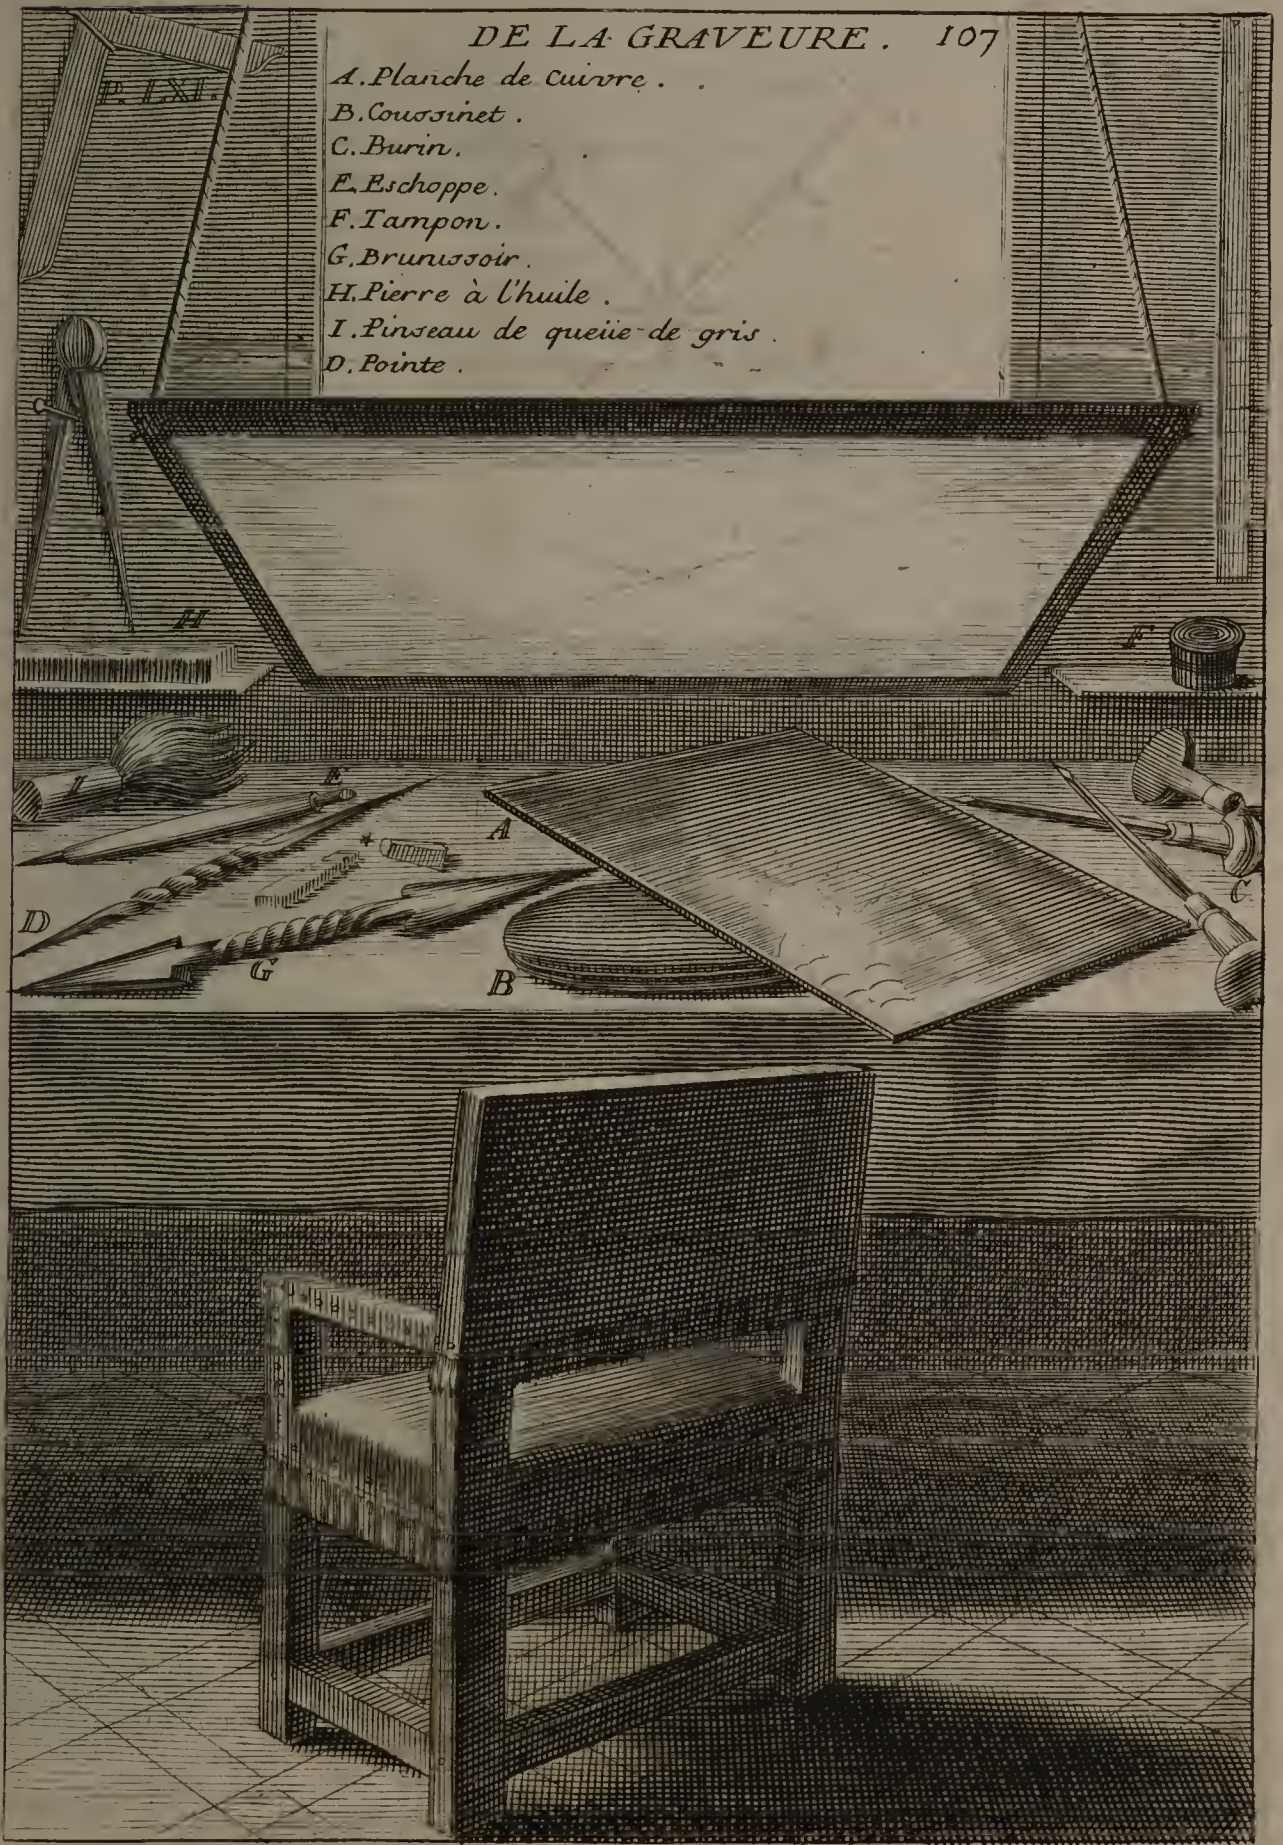 DE LA GRAVEURE. 107
P. LXI.
A. Planche de Cuivre.
B. Coussinet.
C. Burin.
E. Eschoppe.
F. Tampon.
G. Brunissoir.
H. Pierre à l'huile.
I. Pinseau de queüe-de gris.
D. Pointe.
H
F
I
E
A
C
D
G
B